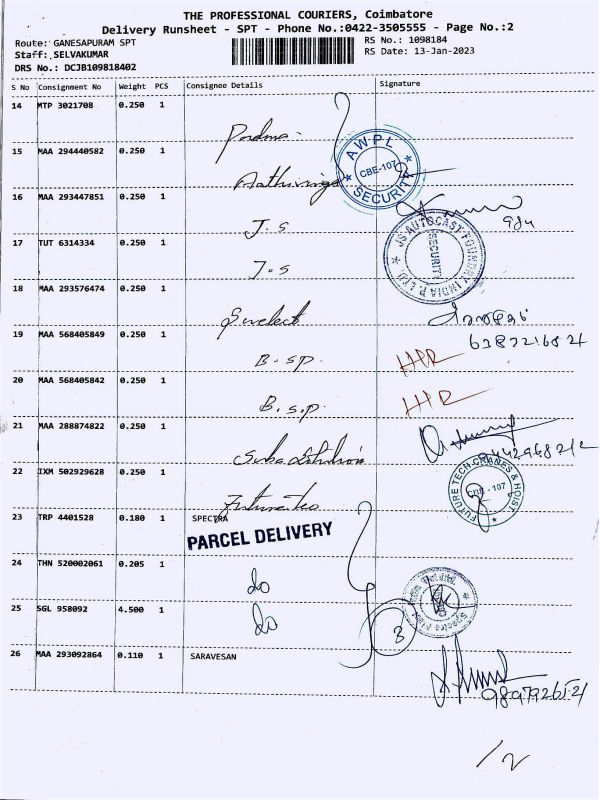 THE PROFESSIONAL COURIERS, Coimbatore
Delivery Runsheet - SPT - Phone No.:0422-3505555 - Page No.:2
Route: GANESAPURAM SPT
RS No.: 1098184
Staff: SELVAKUMAR
RS Date: 13-Jan-2023
DRS No.: DCJB109818402
S No Consignment No Weight PCS Consignee Details Signature
14 MTP 3021708 0.250 1
Padma
15 MAA 294440582 0.250 1
AWPL CBE-107 SECURITY
16 MAA 293447851 0.250 1
J.S
984
17 TUT 6314334 0.250 1
J.S
JS AUTOCAST FOUNDRY INDIA P LTD. SECURITY
18 MAA 293576474 0.250 1
19 MAA 568405849 0.250 1
B.SP.
HR
20 MAA 568405842 0.250 1
B.S.P.
HR
21 MAA 288874822 0.250 1
22 IXM 502929628 0.250 1
FUTURE TECH CRANES & HOIST CBE-107
23 TRP 4401528 0.180 1 SPECTRA
PARCEL DELIVERY
24 THN 520002061 0.205 1
do
25 SGL 958092 4.500 1
do
3
26 MAA 293092864 0.110 1 SARAVESAN
1/2